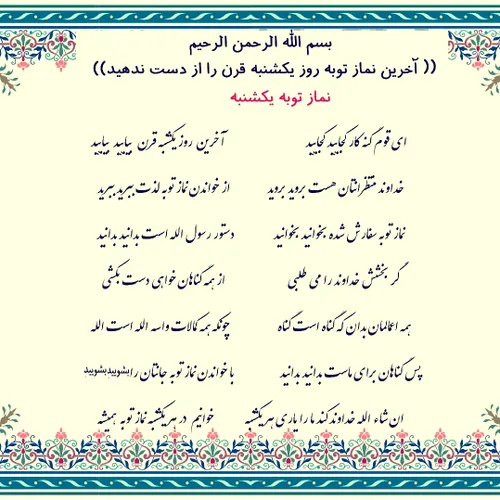 بسم الله الرحمن الرحیم
(( آخرین نماز توبه روز یکشنبه قرن را از دست ندهید))
نماز توبه یکشنبه
ای قوم گنه کار کجایید کجایید آخرین روز یکشبه قرن بیایید بیایید
خداوند منتظرانتان هست بروید بروید از خواندن نماز توبه لذت ببرید ببرید
نماز توبه سفارش شده بخوانید بخوانید دستور رسول الله است بدانید بدانید
گر بخشش خداوند را می طلبی از همه گناهان خواهی دست بکشی
همه اعمالمان بدان که گناه است گناه چونکه همه کمالات واسه الله است الله
پس گناهان برای ماست بدانید بدانید با خواندن نماز توبه جانتان را بشویید بشویید
ان شاء الله خداوند کند ما را یاری هر یکشبه خوانیم در هر یکشبه نماز توبه همشه